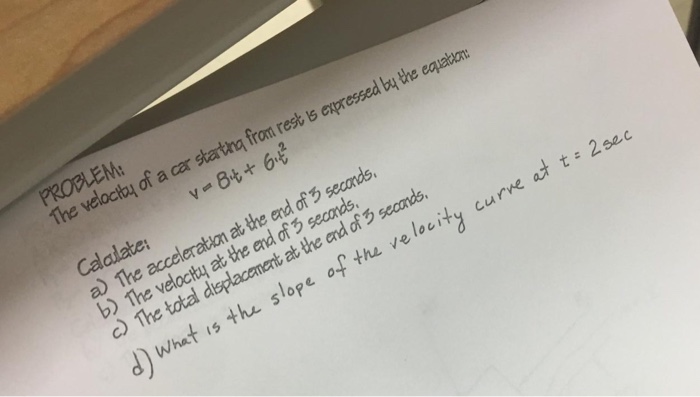 PROBLEM:
The velocity of a car starting from rest is expressed by the equation:
v = 8·t + 6·t²
Calculate:
a) The acceleration at the end of 3 seconds.
b) The velocity at the end of 3 seconds.
c) The total displacement at the end of 3 seconds.
d) What is the slope of the velocity curve at t = 2 sec